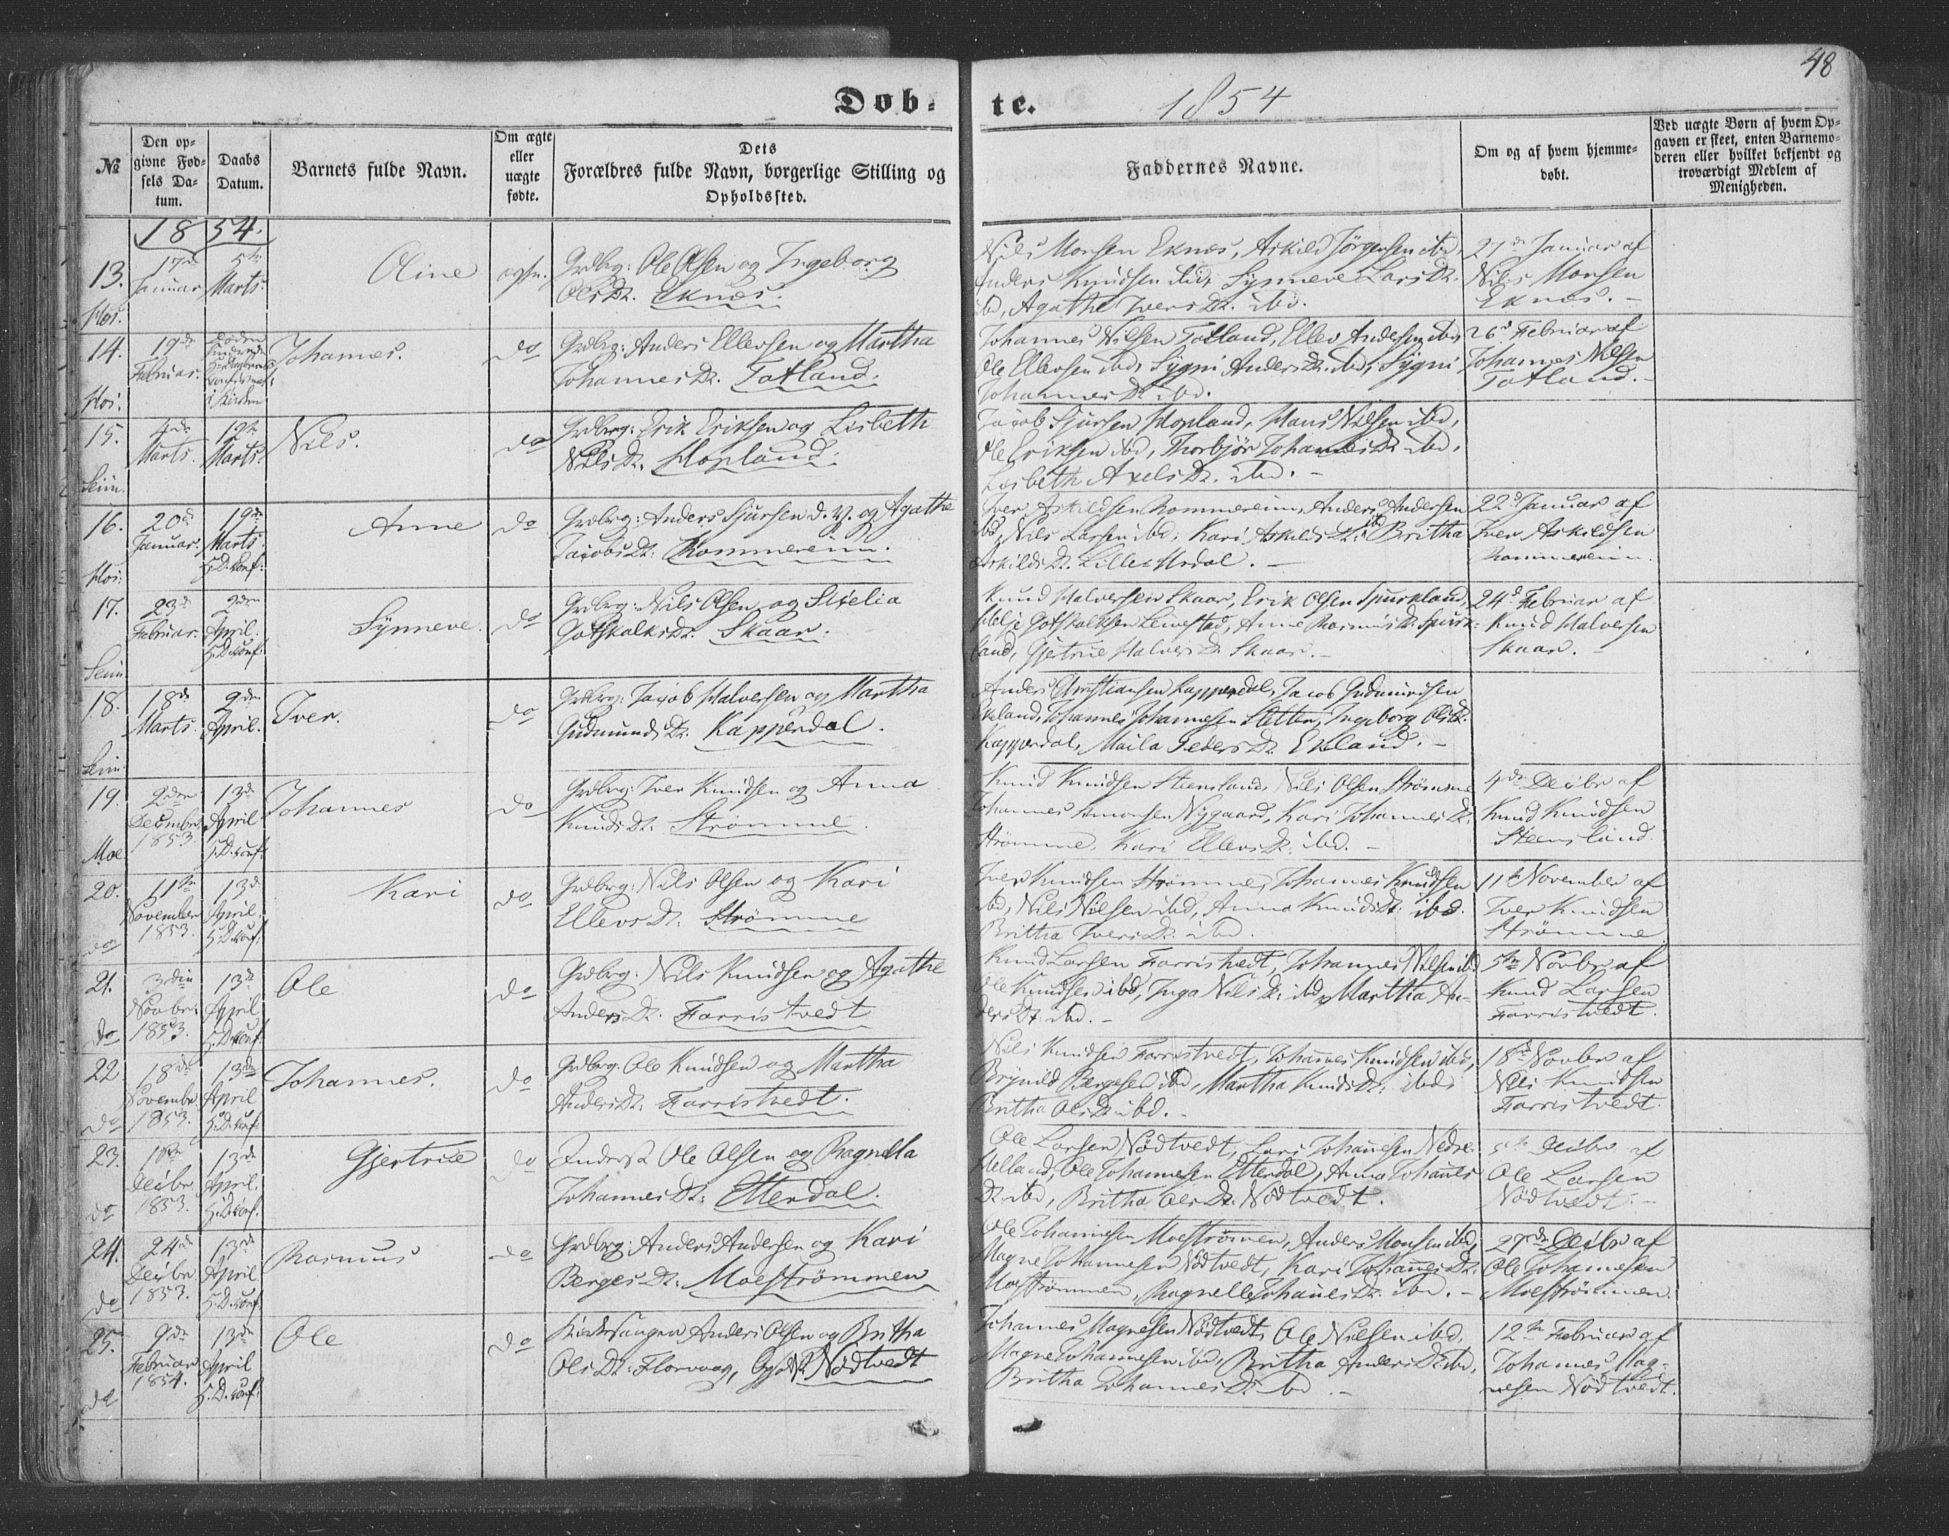 48
Døb-
te. 1854
№
Den op-
givne Fød-
sels Da-
tum.
Daabs
Datum.
Barnets fulde Navn.
Om ægte
eller
uægte
fødte.
Dets
Forældres fulde Navn, borgerlige Stilling og
Opholdssted.
Faddernes Navne.
Om og af hvem hjemme-
døbt.
Ved uægte Børn af hvem Op-
gaven er skeet, enten Barnemo-
deren eller hvilket bekjendt og
troværdigt Medlem af
Menigheden.
1854.
13.
Hos.
17de
Januar
5te
Marts.
Oline
ægte.
Grdbrg: Ole Olsen og Ingeborg
Olsdr. Eknæs.
Nils Monsen Eknæs, Askild Jørgensen ibd,
Anders Knudsen ibid, Synneve Larsdr.
ibd, Agathe Iversdr. ibd.
27de Januar af
Nils Monsen
Eknæs.
14.
Hos.
19de
Februar.
i Kirken
Johannes.
do
Grdbrg: Anders Ellevsen og Martha
Johannesdr. Totland.
Johannes Nilsen Totland, Ellev Andersen ibd
Ole Ellevsen ibd, Sygni Andersdr. ibd, Sygni
Johannesdr. ibd.
26de Februar af
Johannes Nilsen
Totland.
15.
Seim.
4de
Marts.
19de
Marts.
Nils.
do
Grdbrg: Erik Eriksen og Lisbeth
Nilsdr. Hopland.
Jacob Sjursen Hopland, Hans Nilsen ibd,
Ole Eriksen ibd, Thorbjør Johannesdr. ibd,
Lisbeth Axelsdr. ibd.
16.
Hos.
20de
Januar.
19de
Marts
H.D. conf:
Anne
do
Grdbrg: Anders Sjursen d. y. og Agathe
Jacobsdr: Rommereim.
Iver Askildsen Rommereim, Anders Andersen
ibd, Nils Larsen ibd, Kari Askildsdr. ibd Britha
Askildsdr. Lille Urdal.
22de Januar af
Iver Askildsen
Rommereim.
17.
Seim
23de
Februar.
2den
April.
H.D. conf:
Synneve.
do
Grdbrg: Nils Olsen og Sicelia
Gotskalksdr. Skaar.
Knud Halversen Skaar, Erik Olsen Spurkland,
Helje Gotskalksen Leivestad, Anne Rasmusdr. Spurk-
land, Gjertrue Halversdr. Skaar.
24de Februar af
Knud Halversen
Skaar.
18.
Seim.
18de
Marts.
9den
April.
Iver.
do
Grdbrg: Jacob Halversen og Martha
Gudmundsdr. Kapperdal.
Anders Christiansen Kapperdal, Jacob Gudmundsen
Ekeland, Johannes Johannesen Sletten, Ingeborg Olsdr.
Kapperdal, Maila Pedersdr. Ekeland.
19.
Moe
2den
Decembr.
1853.
13de
April
H.D. conf:
Johannes
do
Grdbrg: Iver Knudsen og Anna
Knudsdr: Strømme.
Knud Knudsen Steensland, Nils Olsen Strømme
Johannes Amonsen Nygaard, Kari Johannesdr.
Strømme, Kari Ellevsdr. ibd.
4de Decbr af
Knud Knudsen
Steensland.
20.
do
11te
November
1853.
13de
April.
H.D. conf:
Kari
do
Grdbrg: Nils Olsen og Kari
Ellevsdr: Strømme
Iver Knudsen Strømme, Johannes Knudsen
ibd, Nils Nilsen ibd, Anna Knudsdr: ibd.
Britha Iversdr: ibd.
11te November af
Iver Knudsen
Strømme
21.
do
3die
Novbr:
1853.
13de
April
H.D. conf:
Ole
do
Grdbrg: Nils Knudsen og Agathe
Andersdr. Farristvedt
Knud Larsen Farristvedt, Johannes Nilsen ibd
Ole Knudsen ibd, Inga Nilsdr. ibd, Martha An-
dersdr. ibd.
5te Novbr af
Knud Larsen
Farristvedt.
22.
do
18de
Novembr.
1853.
13de
April
H.D. conf:
Johannes.
do
Grdbrg: Ole Knudsen og Martha
Andersdr: Farristvedt.
Nils Knudsen Farristvedt, Johannes Knudsen ibd,
Brynild Bergesen ibd, Martha Knudsdr: ibd
Britha Olsdr. ibd.
18de Novbr af
Nils Knudsen
Farristvedt.
23.
do
Decbr.
1853.
13de
April.
H.D. conf:
Gjertrue
do
Inderst Ole Olsen og Ragnilla
Johannesdr: Etterdal.
Ole Larsen Nødtvedt, Lars Johannesen Nedre
Helland, Ole Johannesen Etterdal, Anna Johannes
dr. ibd, Britha Olsdr: Nødtvedt.
5te Decbr af
Ole Larsen
Nødtvedt.
24.
do
24de
Decbr
1853.
13de
April
H.D. conf:
Rasmus
do
Grdbrg: Anders Andersen og Kari
Bergesdr: Moestrømmen
Ole Johannesen Moestrømen, Anders Monsen ibd,
Magne Johannesen Nødtvedt, Kari Johannesdr:
Moestrømmen, Ragnelle Johannesdr. ibd.
27de Decbr af
Ole Johannesen
Moestrømmen.
25.
do
9de
Februar
1854.
13de
April
H.D. conf:
Ole
do
Kirkesanger Anders Olsen og Britha
Olsdr: Florvaag, Nødtvedt
Johannes Magnesen Nødtvedt, Ole Nilsen ibd,
Magne Johannesen ibd, Britha Andersdr. ibd,
Britha Johannesdr. ibd.
12te Februar af
Johannes Mag-
nesen Nødtvedt.